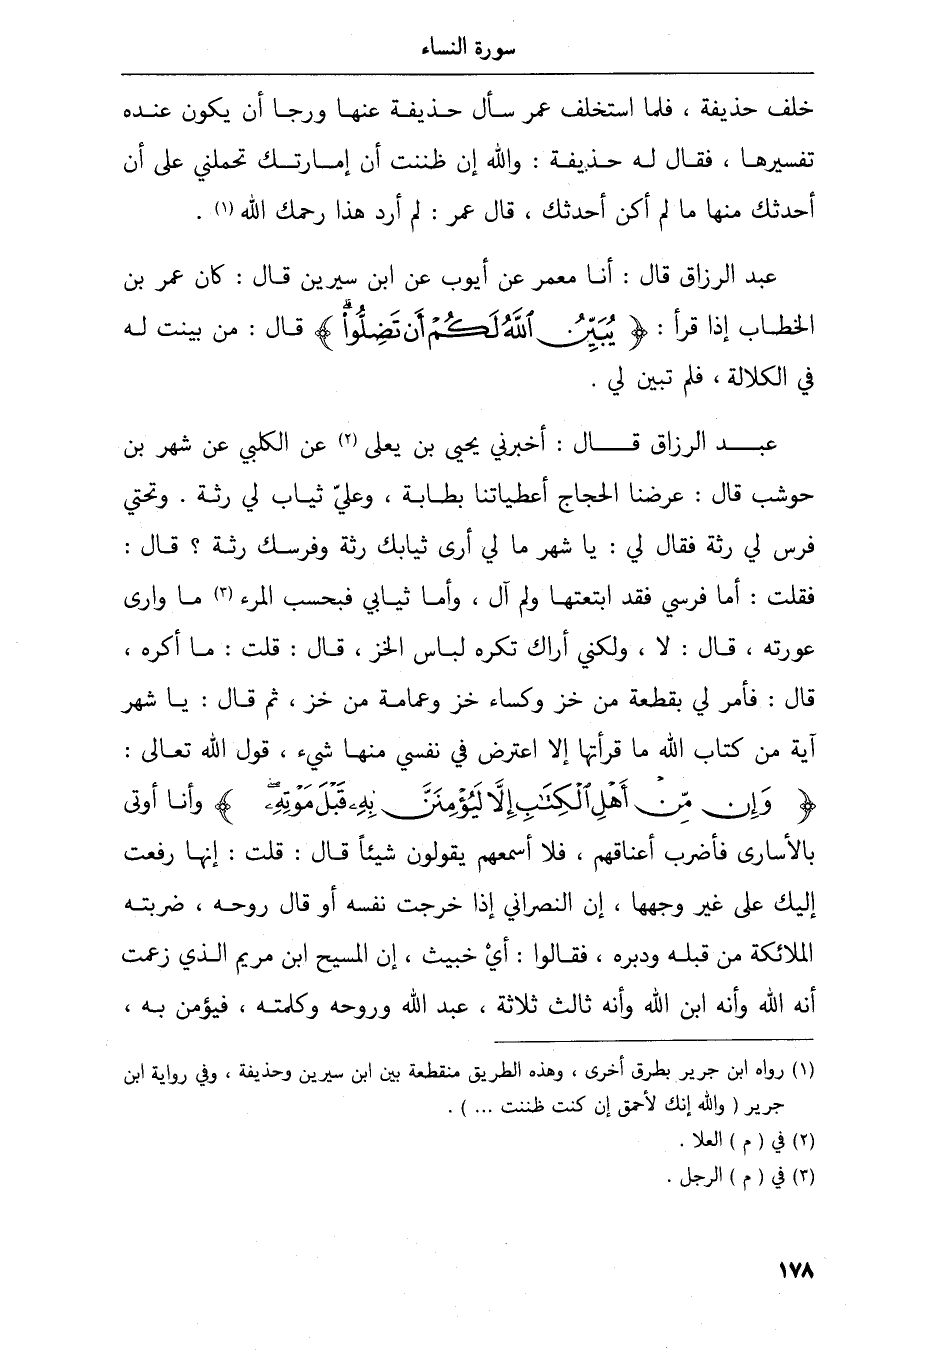 سورة النساء
خلف حذيفة ، فلما استخلف عمر سأل حذيفة عنها ورجا أن يكون عنده
تفسيرها ، فقال له حذيفة : والله إن ظننت أن إمارتك تحملني على أن
أحدثك منها ما لم أكن أحدثك ، قال عمر : لم أرد هذا رحمك الله (١) .
عبد الرزاق قال : أنا معمر عن أيوب عن ابن سيرين قال : كان عمر بن
الخطاب إذا قرأ : ﴿ يُبَيِّنُ ٱللَّهُ لَكُمْ أَن تَضِلُّوا۟ۗ ﴾ قال : من بينت له
في الكلالة ، فلم تبين لي .
عبد الرزاق قال : أخبرني يحيى بن يعلى (٢) عن الكلبي عن شهر بن
حوشب قال : عرضنا الحجاج أعطياتنا بطابة ، وعليّ ثياب لي رثة . وتحتي
فرس لي رثة فقال لي : يا شهر ما لي أرى ثيابك رثة وفرسك رثة ؟ قال :
فقلت : أما فرسي فقد ابتعتها ولم آل ، وأما ثيابي فبحسب المرء (٣) ما وارى
عورته ، قال : لا ، ولكني أراك تكره لباس الخز ، قال : قلت : ما أكره ،
قال : فأمر لي بقطعة من خز وكساء خز وعمامة من خز ، ثم قال : يا شهر
آية من كتاب الله ما قرأتها إلا اعترض في نفسي منها شيء ، قول الله تعالى :
﴿ وَإِن مِّنْ أَهْلِ ٱلْكِتَٰبِ إِلَّا لَيُؤْمِنَنَّ بِهِۦ قَبْلَ مَوْتِهِۦۖ ﴾ وأنا أوتى
بالأسارى فأضرب أعناقهم ، فلا أسمعهم يقولون شيئاً قال : قلت : إنها رفعت
إليك على غير وجهها ، إن النصراني إذا خرجت نفسه أو قال روحه ، ضربته
الملائكة من قبله ودبره ، فقالوا : أيْ خبيث ، إن المسيح ابن مريم الذي زعمت
أنه الله وأنه ابن الله وأنه ثالث ثلاثة ، عبد الله وروحه وكلمته ، فيؤمن به ،
(١) رواه ابن جرير بطرق أخرى ، وهذه الطريق منقطعة بين ابن سيرين وحذيفة ، وفي رواية ابن
جرير ( والله إنك لأحمق إن كنت ظننت ... ) .
(٢) في ( م ) العلا .
(٣) في ( م ) الرجل .
١٧٨